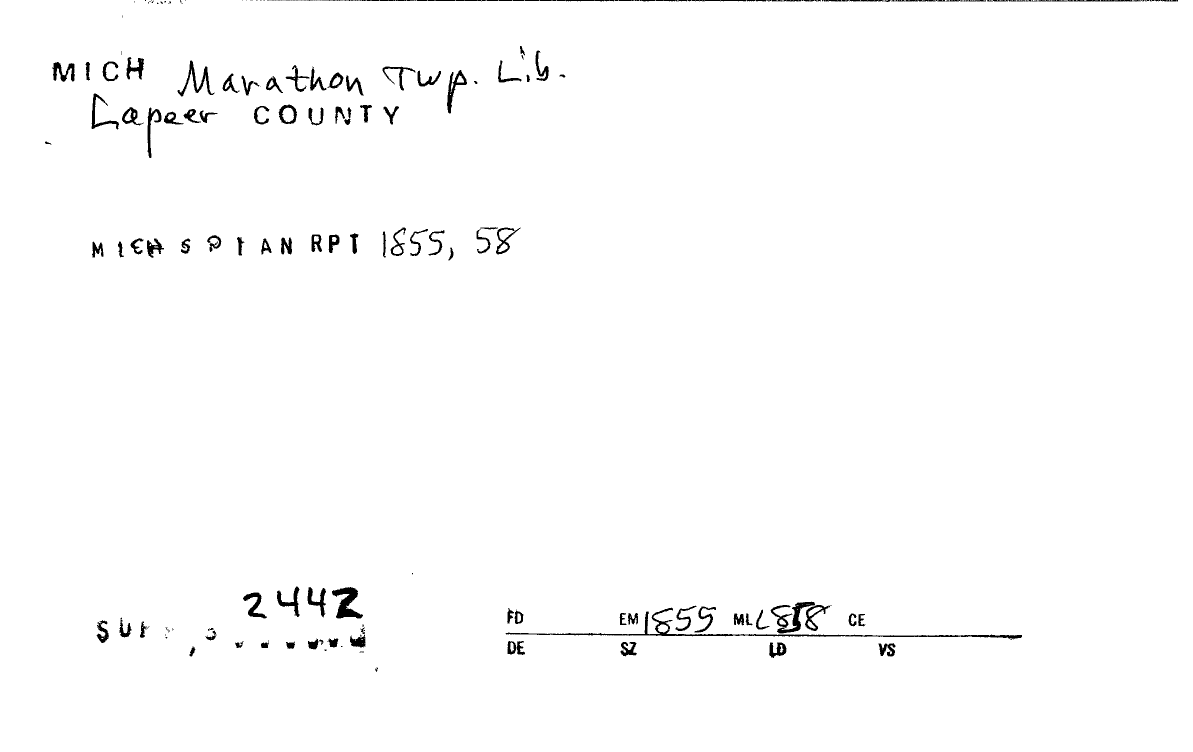 MICH Marathon Twp. Lib.
Lapeer COUNTY
MICH S P I AN RPT 1855, 58
2442
FD EM 1855 ML 1858 CE
DE SZ LD VS